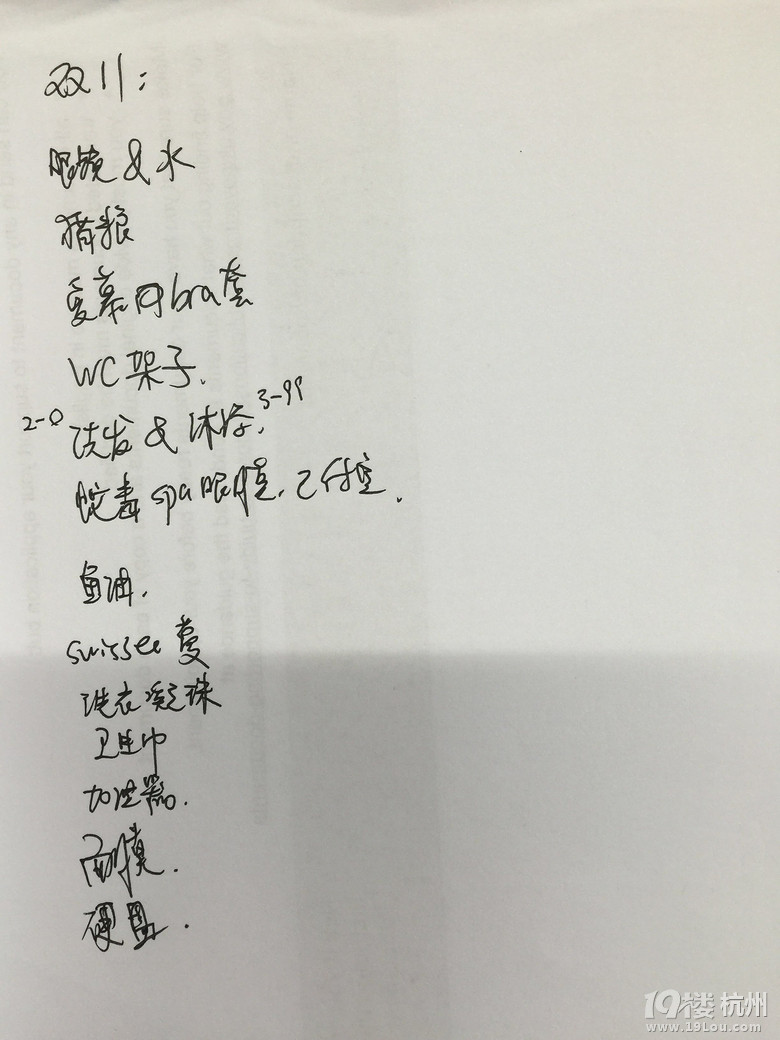 双11:
眼镜 & 水
猫粮
爱慕 bra 套
WC架子.
2-0 洗发 & 沐浴. 3-99
蛇毒spa眼膜.
鱼油.
swisse 蔓
洗衣凝珠
卫生巾
加湿器.
面膜.
硬盘.
19楼 杭州
www.19Lou.com